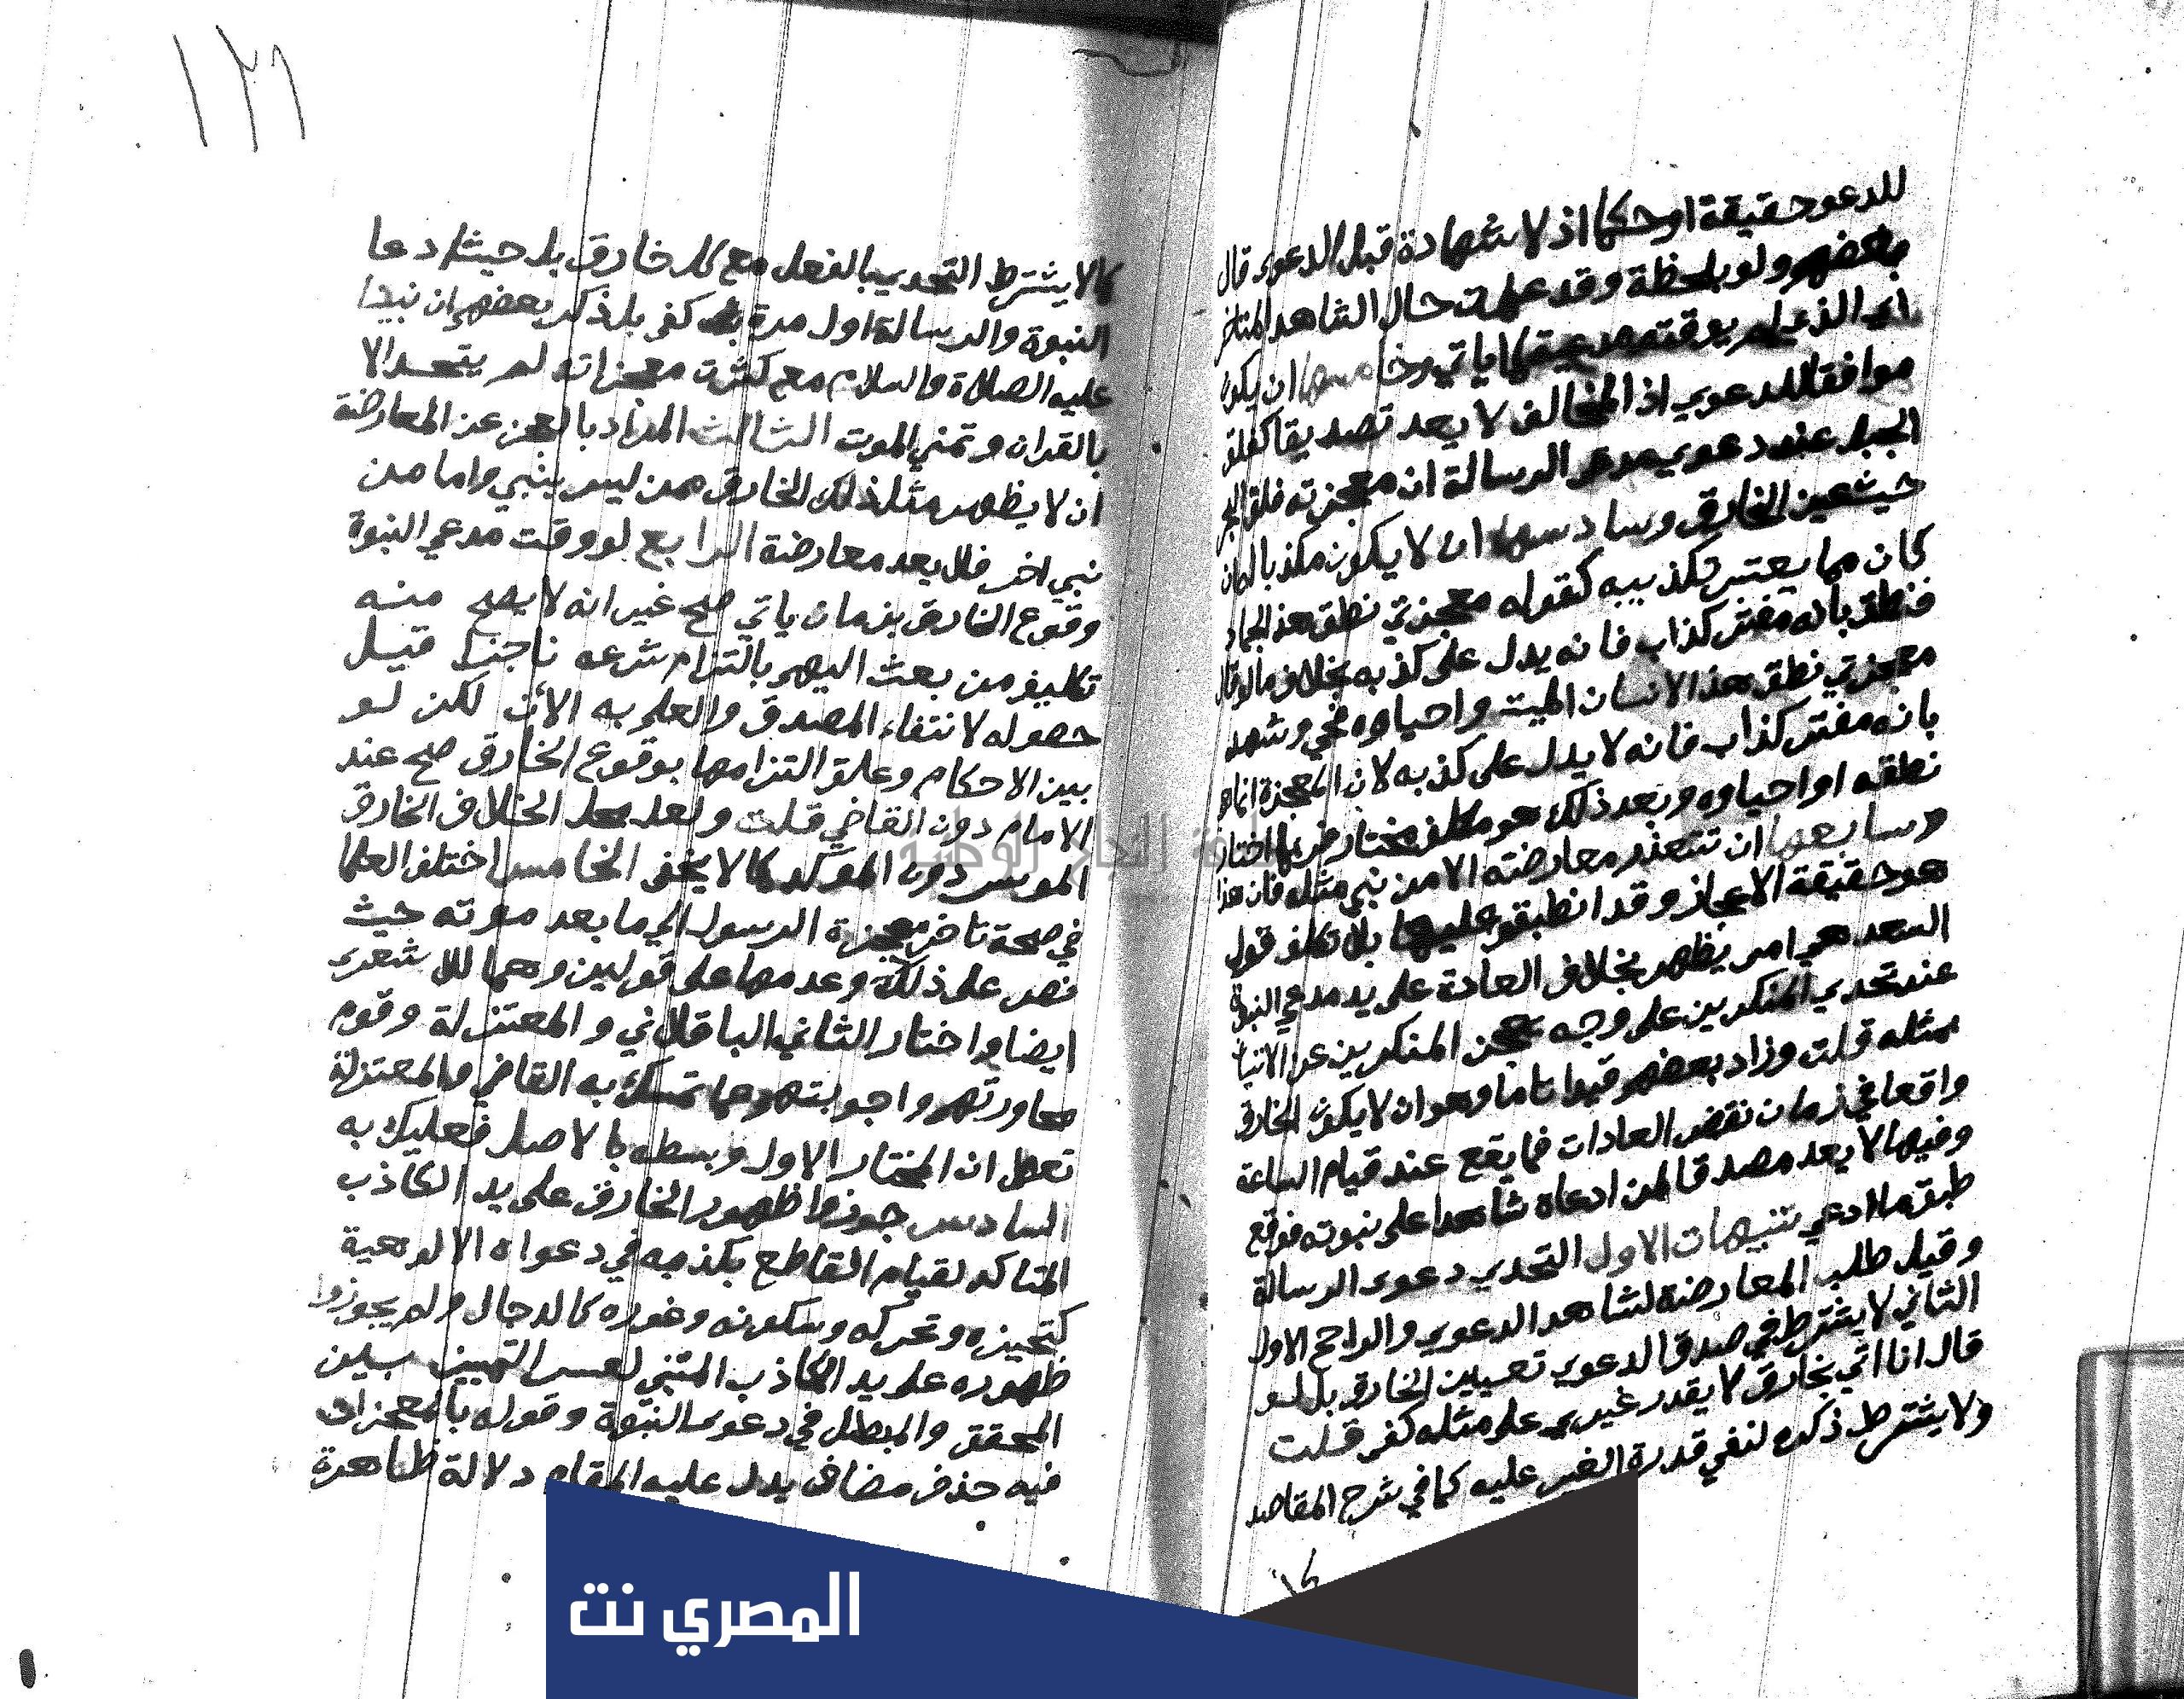 للدعو حقيقة او حكما اذ لا شهادة قبل الدعوى قال
بعضهم ولو بلحظة وقد علمت حال الشاهد المتاخر
اي الذي لم يوقته مدعيه كما ياتي وخامسها ان يكون
موافقا للدعوي اذ المخالف لا يعد تصديقا كفلق
الجبل عند دعوي مدعي الرسالة ان معجزته فلق البحر
حيث عين الخارق وسادسها ان لا يكون مكذبا له ان
كان مما يعتبر تكذيبه كقوله معجزتي نطق هذا الجماد
فنطق بانه مفتر كذاب فانه يدل على كذبه بخلاف ما لو قال
معجزتي نطق هذا الانسان الميت واحياوه فحيي وشهد
بانه مفتر كذاب فانه لا يدل على كذبه لان المعجزة انما هو
نطقه او احياوه وبعد ذلك هو مكلف مختار فربما اختار
وسابعها ان تتعذر معارضته الا من نبي مثله فان هذا
هو حقيقة الاعجاز وقد انطبق عليها بلا تكلف قول
السعد هي امر يظهر بخلاف العادة على يد مدعي النبوة
عند تحدي المنكرين على وجه يعجز المنكرين عن الاتيان
بمثله قلت وزاد بعضهم قيدا ثامنا وهو ان لا يكون الخارق
واقعا في زمان نقض العادات فما يقع عند قيام الساعة
وفيها لا يعد مصدقا لمن ادعاه شاهدا على نبوته فوقع
طبق ما ادعي تنبيهات الاول التحدي دعوى الرسالة
وقيل طلب المعارضة لشاهد الدعوي والراجح الاول
الثاني لا يشترط في صدق الدعوي تعيين الخارق بل لو
قال انا اتي بخارق لا يقدر غيري على مثله كفى قلت
ولا يشترط ذكره لنفي قدرة الغير عليه كما في شرح المقاصد
كما
١٢٦
كما لا يشترط التحدي بالفعل مع كل خارق بل حيث ادعا
النبوة والرسالة اول مرة كفى بل ذكر بعضهم ان نبينا
عليه الصلاة والسلام مع كثرت معجزاته لم يتحد الا
بالقران وتمني الموت الثالث المراد بالعجز عن المعارضة
ان لا يظهر مثل ذلك الخارق ممن ليس بنبي واما من
نبي اخر فلا يعد معارضة الرابع لو وقت مدعي النبوة
وقوع الخارق بزمان ياتي صح غير انه لا يصح منه
تكليف من بعث اليهم بالتزام شرعه ناجزا قبل
حصوله لانتفاء المصدق والعلم به الان لكن لو
بين الاحكام وعلق التزامها بوقوع الخارق صح عند
الامام دون القاضي قلت ولعل محل الخلاف الخارق
الموسس دون الموكد كما لا يخفى الخامس اختلف العلما
في صحة تاخر معجزة الرسول الي ما بعد موته حيث
نص على ذلك وعدمها على قولين وهما للاشعري
ايضا واختار الثاني الباقلاني والمعتزلة وقوم
محاورتهم واجوبتهم وما تمسك به القاضي والمعتزلة
تعلم ان المختار الاول وبسطه بالاصل فعليك به
السادس جوزوا ظهور الخارق على يد الكاذب
المتاكد لقيام القاطع بكذبه في دعواه الالوهية
كتحيزه وتحركه وسكونه وعوره كالدجال ولم يجوزوا
ظهوره على يد الكاذب المتنبي لعسر التمييز بين
المحقق والمبطل في دعوى النبوة وقوله بالمعجزات
فيه حذف مضاف يدل عليه المقام دلالة ظاهرة
المصري نت